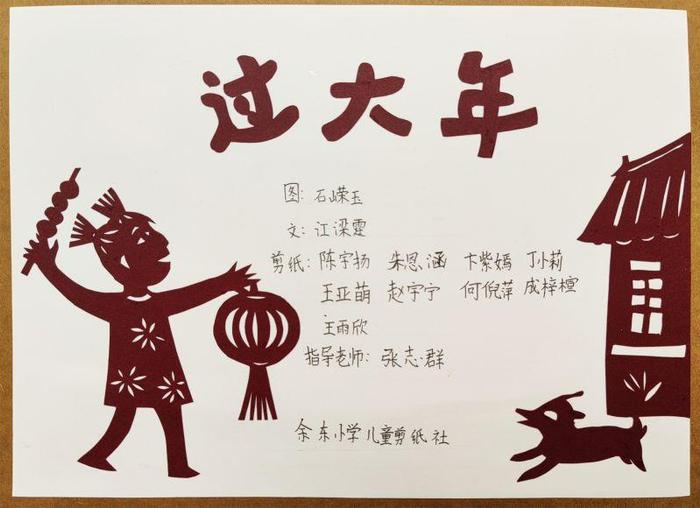 过大年
图：石嵘玉
文：江梁霆
剪纸：陈宇扬 朱恩涵 卞紫嫣 丁小莉
王亚萌 赵宇宁 何倪萍 成梓楦
王雨欣
指导老师：张志群
余东小学儿童剪纸社